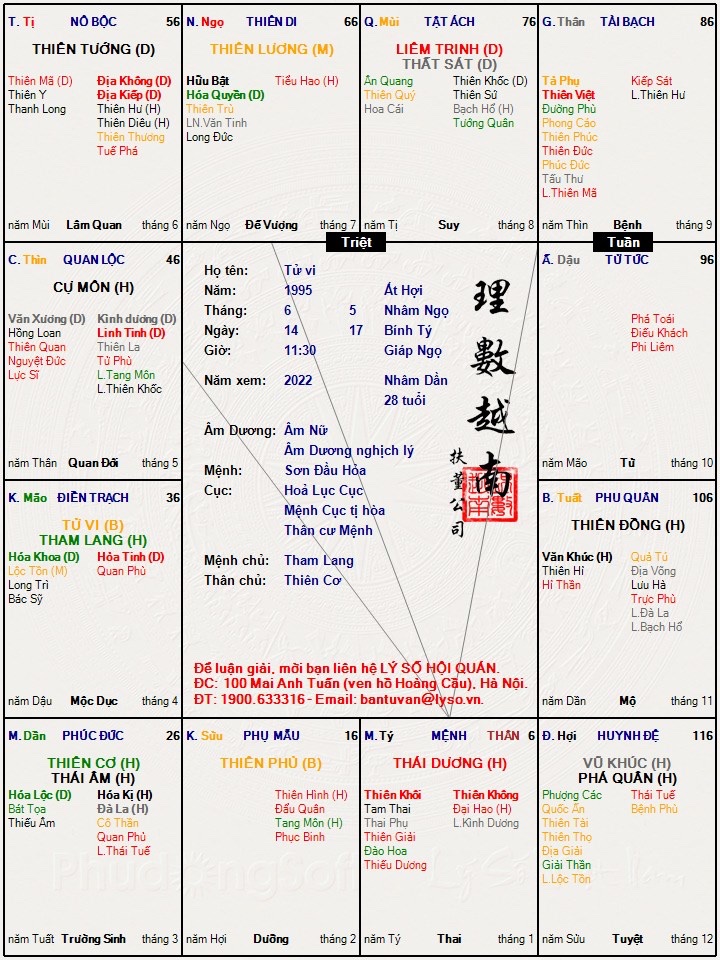 T. Tị NÔ BỘC 56
THIÊN TƯỚNG (D)
Thiên Mã (D) Địa Không (D)
Thiên Y Địa Kiếp (D)
Thanh Long Thiên Hư (H)
Thiên Diêu (H)
Thiên Thương
Tuế Phá
năm Mùi Lâm Quan tháng 6
N. Ngọ THIÊN DI 66
THIÊN LƯƠNG (M)
Hữu Bật Tiểu Hao (H)
Hóa Quyền (D)
Thiên Trù
LN.Văn Tinh
Long Đức
năm Ngọ Đế Vượng tháng 7
Q. Mùi TẬT ÁCH 76
LIÊM TRINH (D)
THẤT SÁT (D)
Ân Quang Thiên Khốc (D)
Thiên Quý Thiên Sứ
Hoa Cái Bạch Hổ (H)
Tướng Quân
năm Tị Suy tháng 8
G. Thân TÀI BẠCH 86
Tả Phụ Kiếp Sát
Thiên Việt L.Thiên Hư
Đường Phù
Phong Cáo
Thiên Phúc
Thiên Đức
Phúc Đức
Tấu Thư
L.Thiên Mã
năm Thìn Bệnh tháng 9
Triệt
Tuần
C. Thìn QUAN LỘC 46
CỰ MÔN (H)
Văn Xương (D) Kình dương (D)
Hồng Loan Linh Tinh (D)
Thiên Quan Thiên La
Nguyệt Đức Tử Phù
Lực Sĩ L.Tang Môn
L.Thiên Khốc
năm Thân Quan Đới tháng 5
Họ tên: Tử vi
Năm: 1995 Ất Hợi
Tháng: 6 5 Nhâm Ngọ
Ngày: 14 17 Bính Tý
Giờ: 11:30 Giáp Ngọ
Năm xem: 2022 Nhâm Dần
28 tuổi
Âm Dương: Âm Nữ
Âm Dương nghịch lý
Mệnh: Sơn Đầu Hỏa
Cục: Hoả Lục Cục
Mệnh Cục tị hòa
Thân cư Mệnh
Mệnh chủ: Tham Lang
Thân chủ: Thiên Cơ
理數越南
扶董公司
Để luận giải, mời bạn liên hệ LÝ SỐ HỘI QUÁN.
ĐC: 100 Mai Anh Tuấn (ven hồ Hoàng Cầu), Hà Nội.
ĐT: 1900.633316 - Email: bantuvan@lyso.vn.
Ấ. Dậu TỬ TỨC 96
Phá Toái
Điếu Khách
Phi Liêm
năm Mão Tử tháng 10
K. Mão ĐIỀN TRẠCH 36
TỬ VI (B)
THAM LANG (H)
Hóa Khoa (D) Hỏa Tinh (D)
Lộc Tồn (M) Quan Phù
Long Trì
Bác Sỹ
năm Dậu Mộc Dục tháng 4
B. Tuất PHU QUÂN 106
THIÊN ĐỒNG (H)
Văn Khúc (H) Quả Tú
Thiên Hỉ Địa Võng
Hỉ Thần Lưu Hà
Trực Phù
L.Đà La
L.Bạch Hổ
năm Dần Mộ tháng 11
M. Dần PHÚC ĐỨC 26
THIÊN CƠ (H)
THÁI ÂM (H)
Hóa Lộc (D) Hóa Kị (H)
Bát Tọa Đà La (H)
Thiếu Âm Cô Thần
Quan Phủ
L.Thái Tuế
năm Tuất Trường Sinh tháng 3
K. Sửu PHỤ MẪU 16
THIÊN PHỦ (B)
Thiên Hình (H)
Đẩu Quân
Tang Môn (H)
Phục Binh
năm Hợi Dưỡng tháng 2
M. Tý MỆNH THÂN 6
THÁI DƯƠNG (H)
Thiên Khôi Thiên Không
Tam Thai Đại Hao (H)
Thai Phụ L.Kình Dương
Thiên Giải
Đào Hoa
Thiếu Dương
năm Tý Thai tháng 1
Đ. Hợi HUYNH ĐỆ 116
VŨ KHÚC (H)
PHÁ QUÂN (H)
Phượng Các Thái Tuế
Quốc Ấn Bệnh Phù
Thiên Tài
Thiên Thọ
Địa Giải
Giải Thần
L.Lộc Tồn
năm Sửu Tuyệt tháng 12